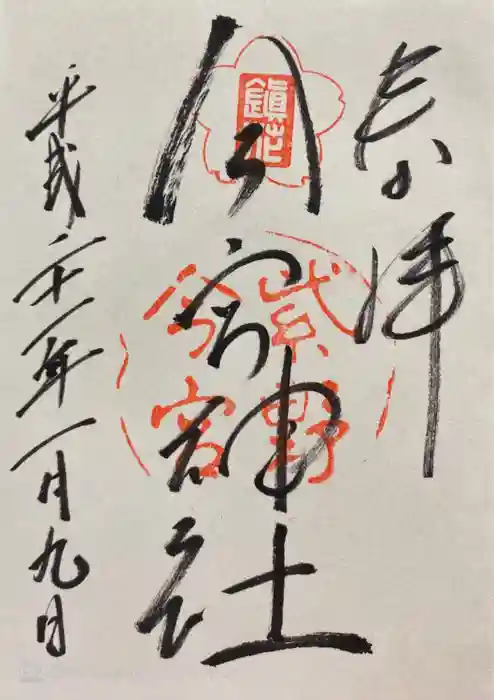 奉拝
鎮花
今宮神社
紫野
今宮
平成二十一年一月九日